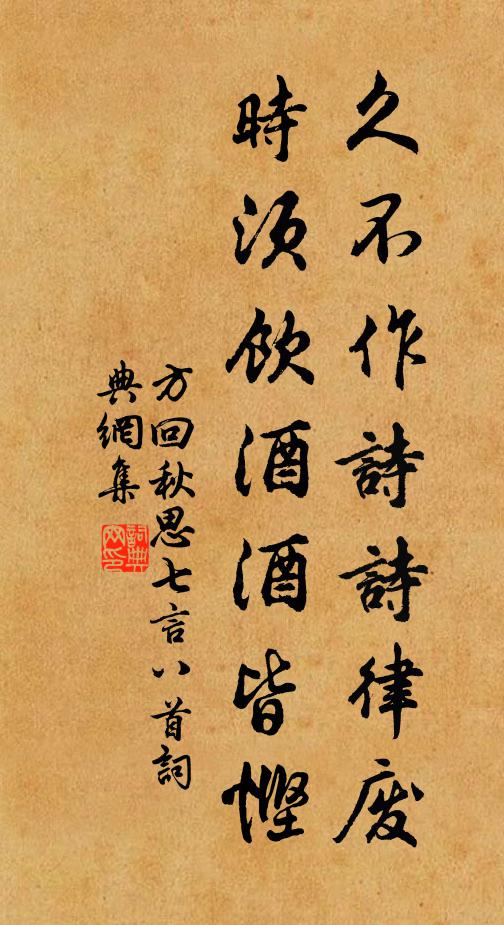 久不作詩詩律廢
時須飲酒酒皆慳
方回秋思七言八首詞
典網集
詞典网印